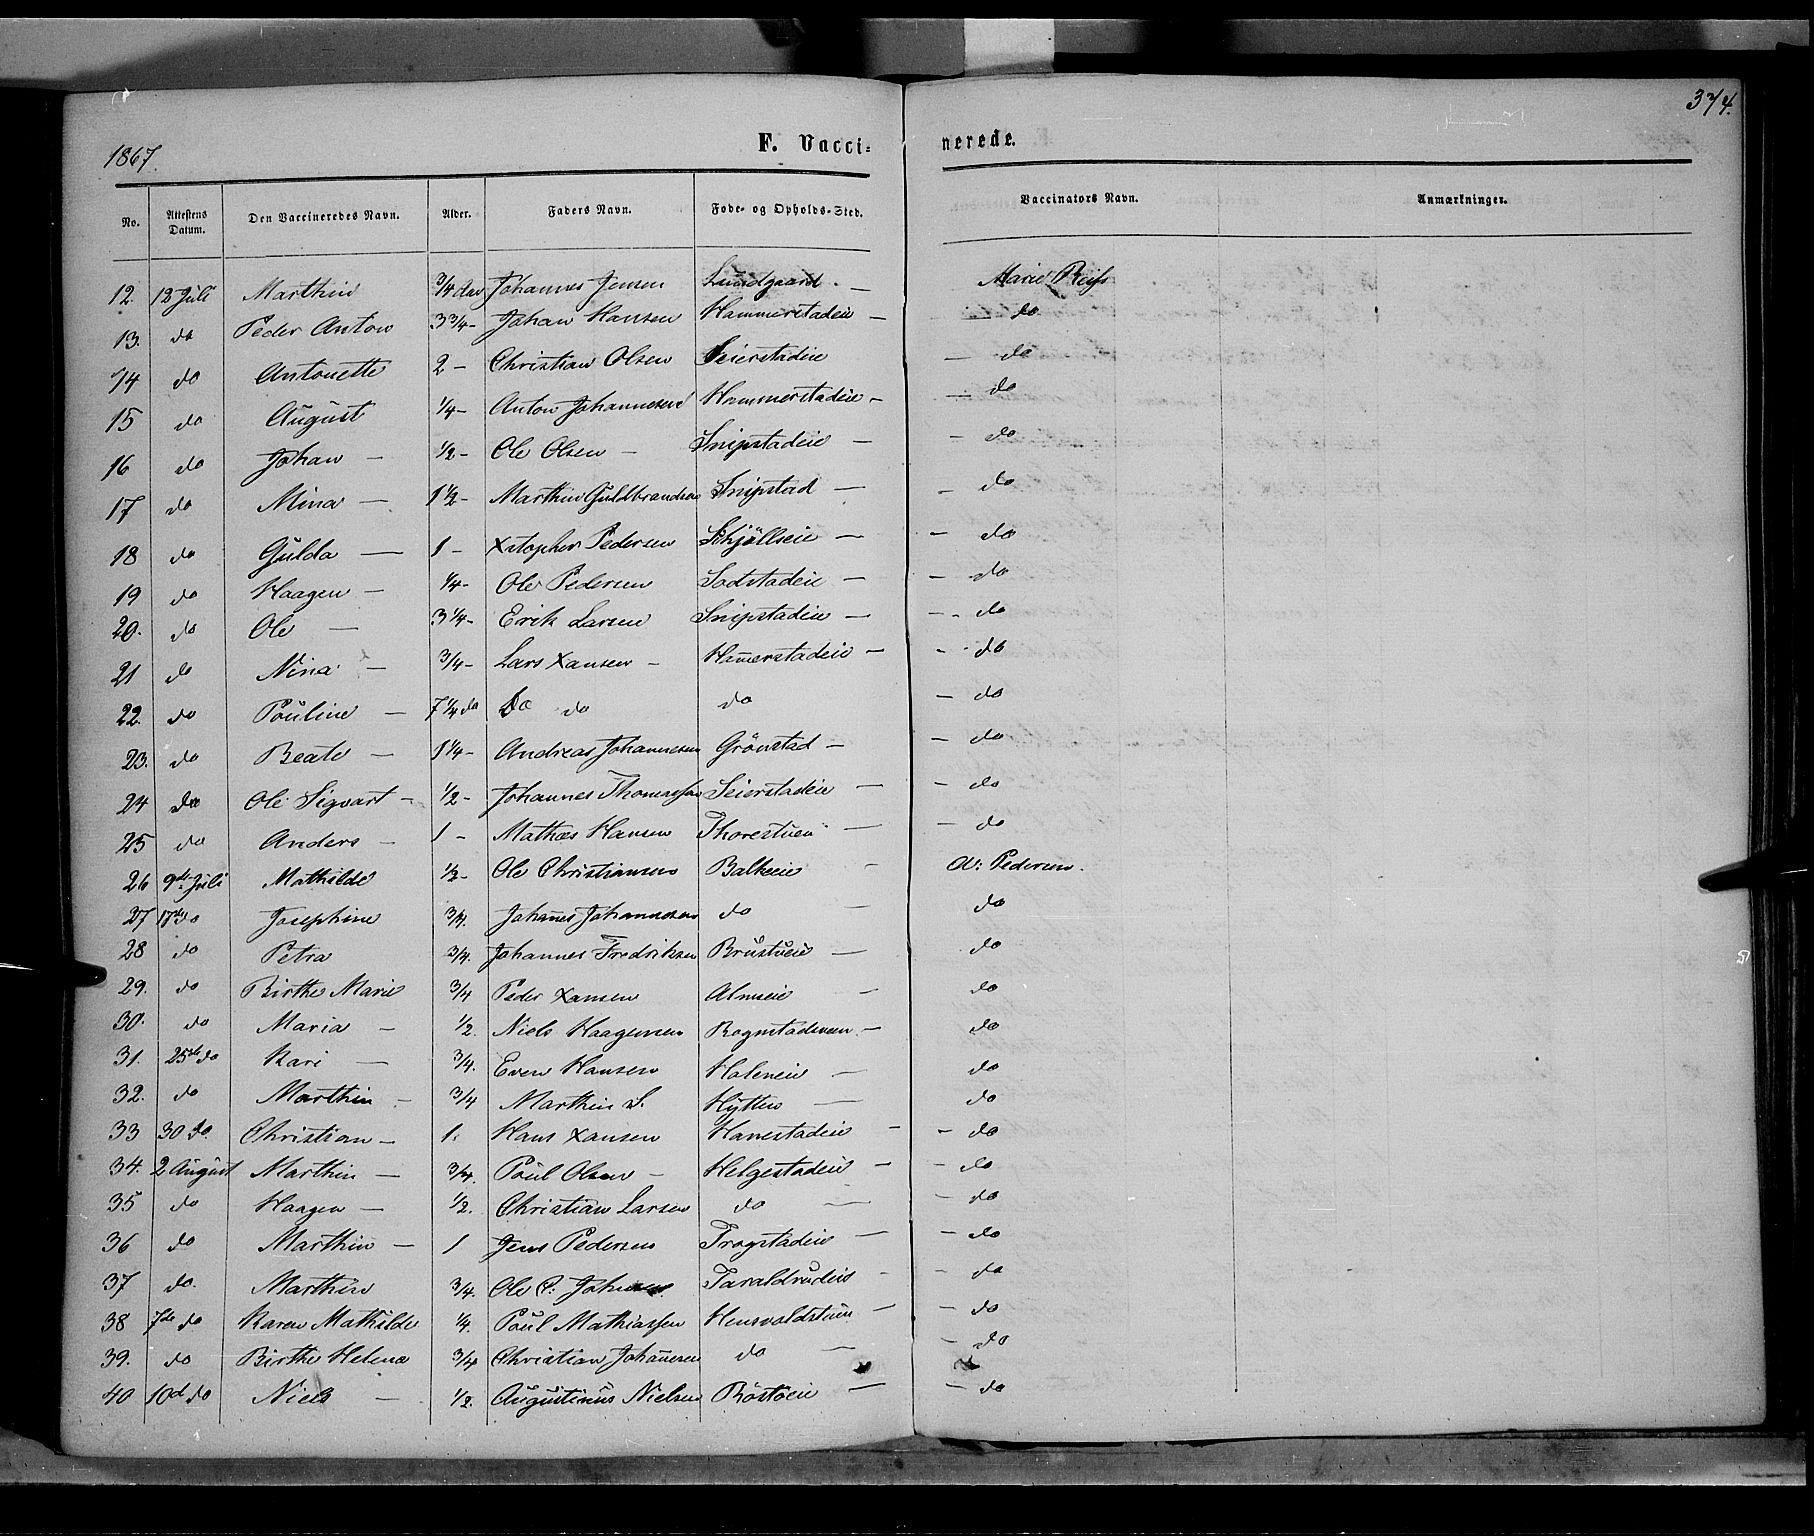 374.
1867.
F. Vacci-
nerede.
No. Attestens Datum. Den Vaccineredes Navn. Alder. Faders Navn. Føde- og Opholds-Sted. Vaccinators Navn. Anmærkninger.
12. 12 Juli Marthin 3/4 Johannes Jensen Lundgaard. — Marie
13. do Peder Anton 3 3/4 - Johan Hansen Hammerstadeie — — do
14 do Antonette 2 - Christian Olsen Seierstadeie — do
15 do August 1/4 - Anton Johannesen Hammerstadeie - — do
16 do Johan — 1/2 - Ole Olsen — Snipstadeie — — do
17 do Mina — 1 1/2 - Marthin Guldbrandsen Snipstad — — do
18 do Gulda — 1 - Xstopher Pedersen Skjöllseie — — do
19 do Haagen — 1/4 - Ole Pedersen Sodstadeie — — do
20. do Ole — 3 1/4 - Erik Larsen Snipstadeie — — do
21 do Nina — 3/4 - Lars Xansen — Ham̄erstadeie — - do
22. do Pauline — 7 1/4 do Do do do — do
23. do Beate — 1 1/4 - Andreas Johannesen Grönstad — — do
24 do Ole Sigvart — 1/2 - Johannes Thomassen Seierstadeie — — do
25 do Anders — 1 - Mathæs Hansen Thorestuen — — do
26 9de Juli Mathilde 1/2 - Ole Christiansen Balkeeie — A: Pedersen.
27 17de do Josephine 3/4. Johan̄es Johannesen do — do
28 do Petra 3/4. Johannes Fredriksen Brustueie — do
29. do Birthe Marie 3/4 Peder Xansen Almseie — do
30. do Maria — 1/2. Niels Haagensen Rognstadeveen. — do
31. 25de do Kari — 3/4. Even Hansen Holeneie — do
32. do Marthin — 3/4 Marthin S. Hytten — do
33 30 do. Christian — 1. Hans Xansen Hanestadeie — — do
34. 2 August Marthin — 3/4. Poul Olsen — Helgestadeie — — do
35 do Haagen — 1/2. Christian Larsen do — — do
36 do Marthin — 1 Jens Pedersen Trogstadeie — — do
37 do. Marthin 3/4. Ole C. Taraldrudeie — — do
38 7de do Karen Mathilde 1/4. Poul Mathiassen Hensvoldstuen — — do
39. do Birthe Helena 3/4 Christian Johan̄esen do — — do
40 10d do Niels — 1/2. Augustinus Nielsen Röstöeie — — do